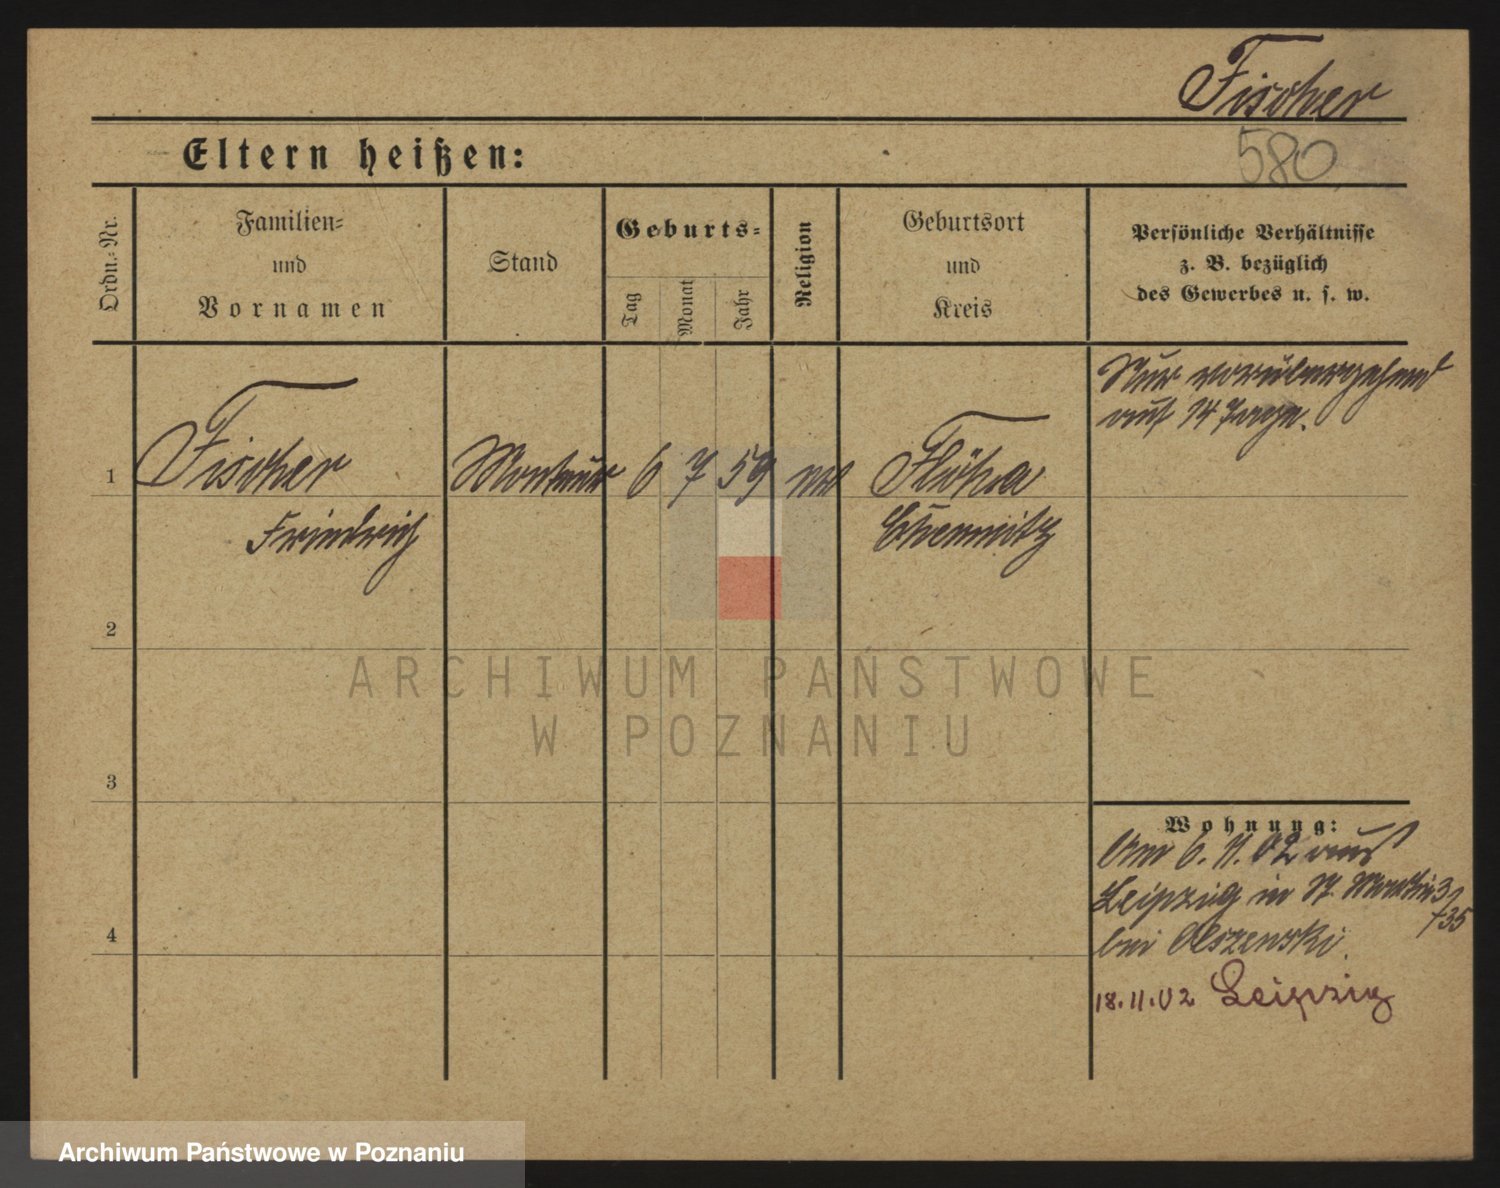 Fischer
580
Eltern heißen:
Ordn.-Nr.
Familien-
und
Vornamen
Stand
Geburts-
Tag
Monat
Jahr
Religion
Geburtsort
und
Kreis
Persönliche Verhältnisse
z. B. bezüglich
des Gewerbes u. s. w.
Nur vorübergehend
auf 14 Tage.
1 Fischer Monteur 6 7 59 Flöha
Friedrich Chemnitz
2
ARCHIWUM PAŃSTWOWE
W POZNANIU
3
Wohnung:
Am 6. 11. 02 aus
Leipzig in St. Martin 3
735
4 bei Olszewski.
18.11.02 Leipzig
Archiwum Państwowe w Poznaniu